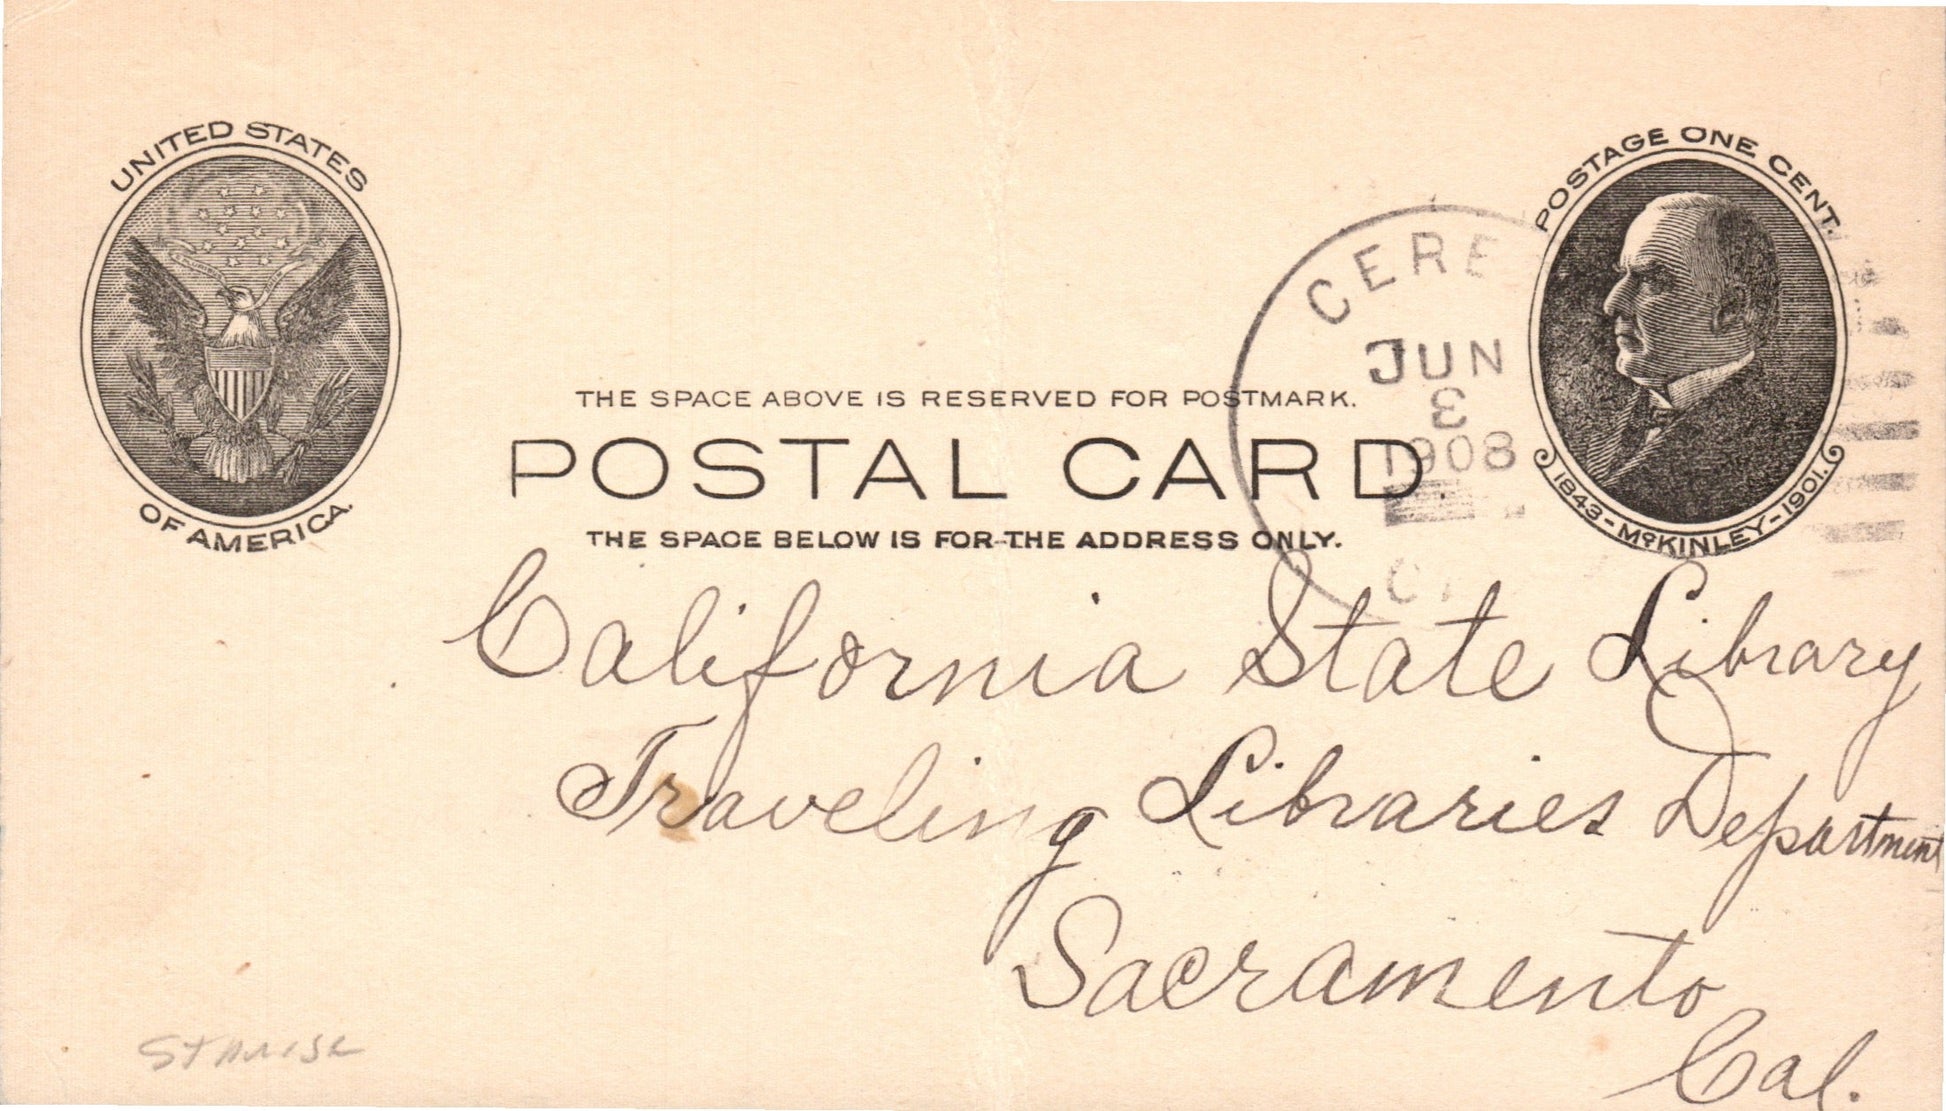 UNITED STATES
OF AMERICA.
POSTAGE ONE CENT.
1843-McKINLEY-1901.
CERE
JUN
3
1908
THE SPACE ABOVE IS RESERVED FOR POSTMARK.
POSTAL CARD.
THE SPACE BELOW IS FOR THE ADDRESS ONLY.
California State Library
Traveling Libraries Department
Sacramento
Cal.